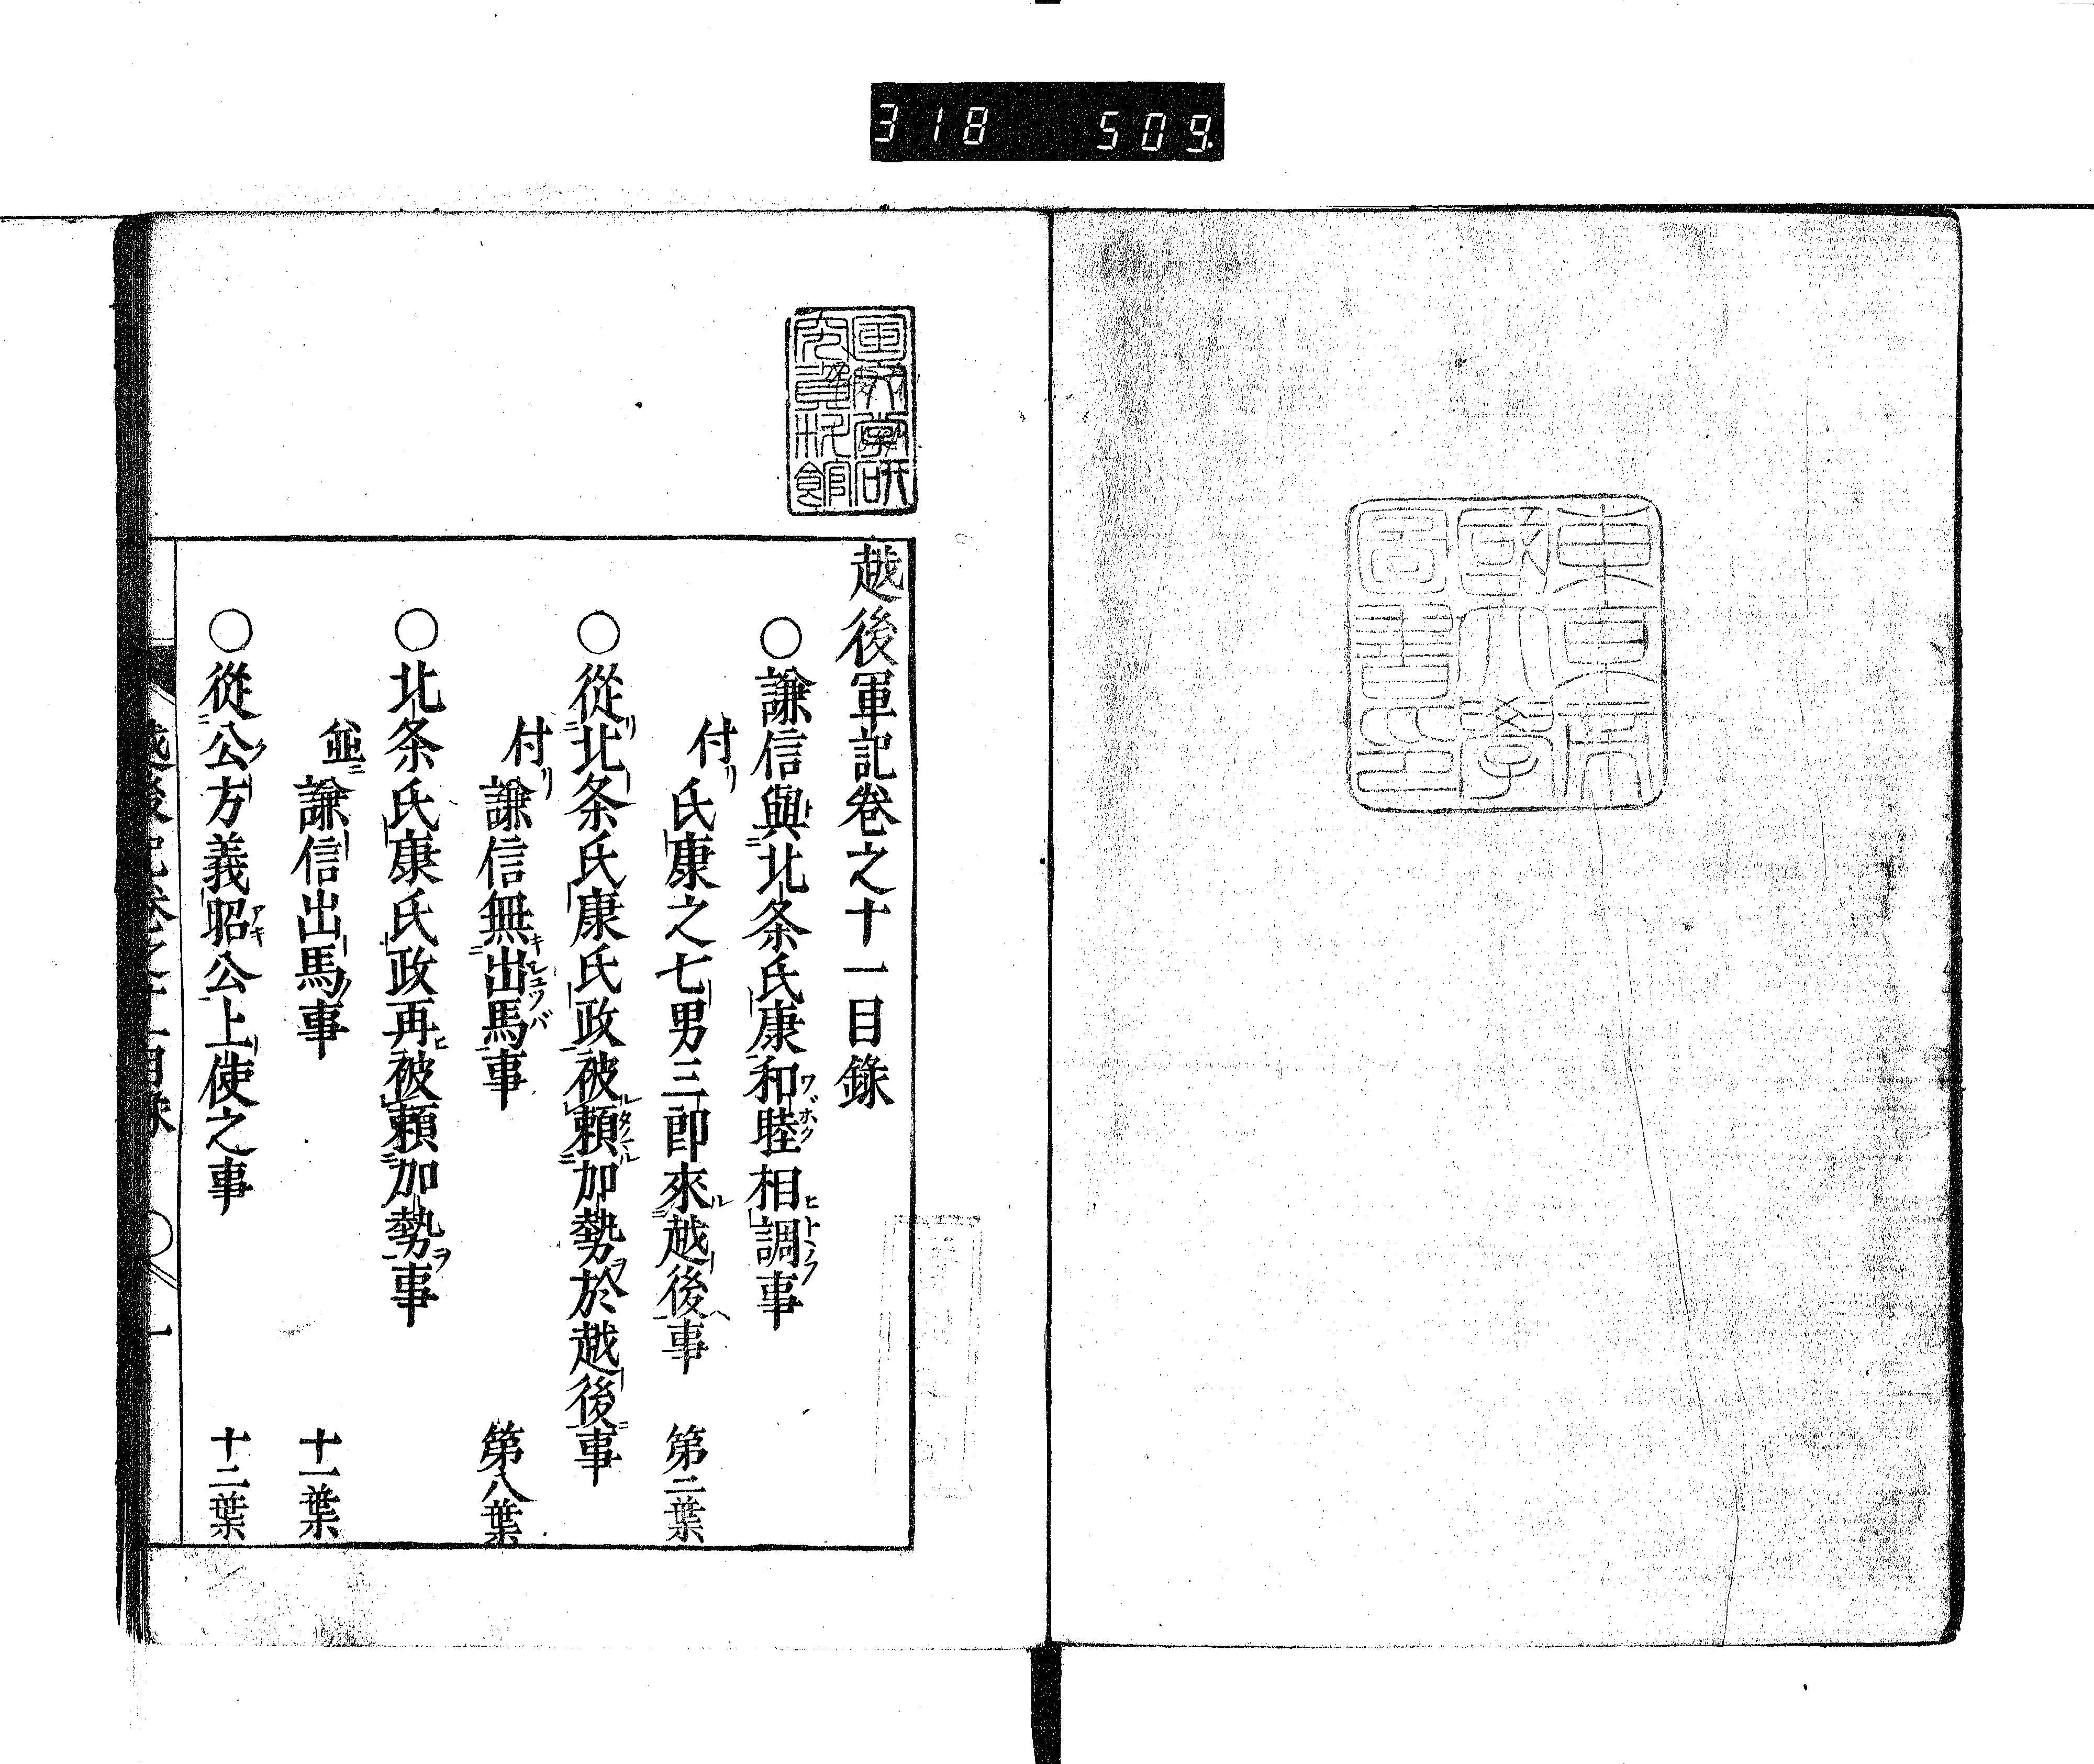 318 509
東京帝
國大學
圖書印
越後軍記卷之十一目録
○謙信與北条氏康和睦相調事
付リ氏康之七男三郎來越後事 第二葉
○從北条氏康氏政被頼加勢於越後事
付リ謙信無出馬事 第八葉
○北条氏康氏政再被頼加勢事
並謙信出馬事 十一葉
○從公方義昭公上使之事 十二葉